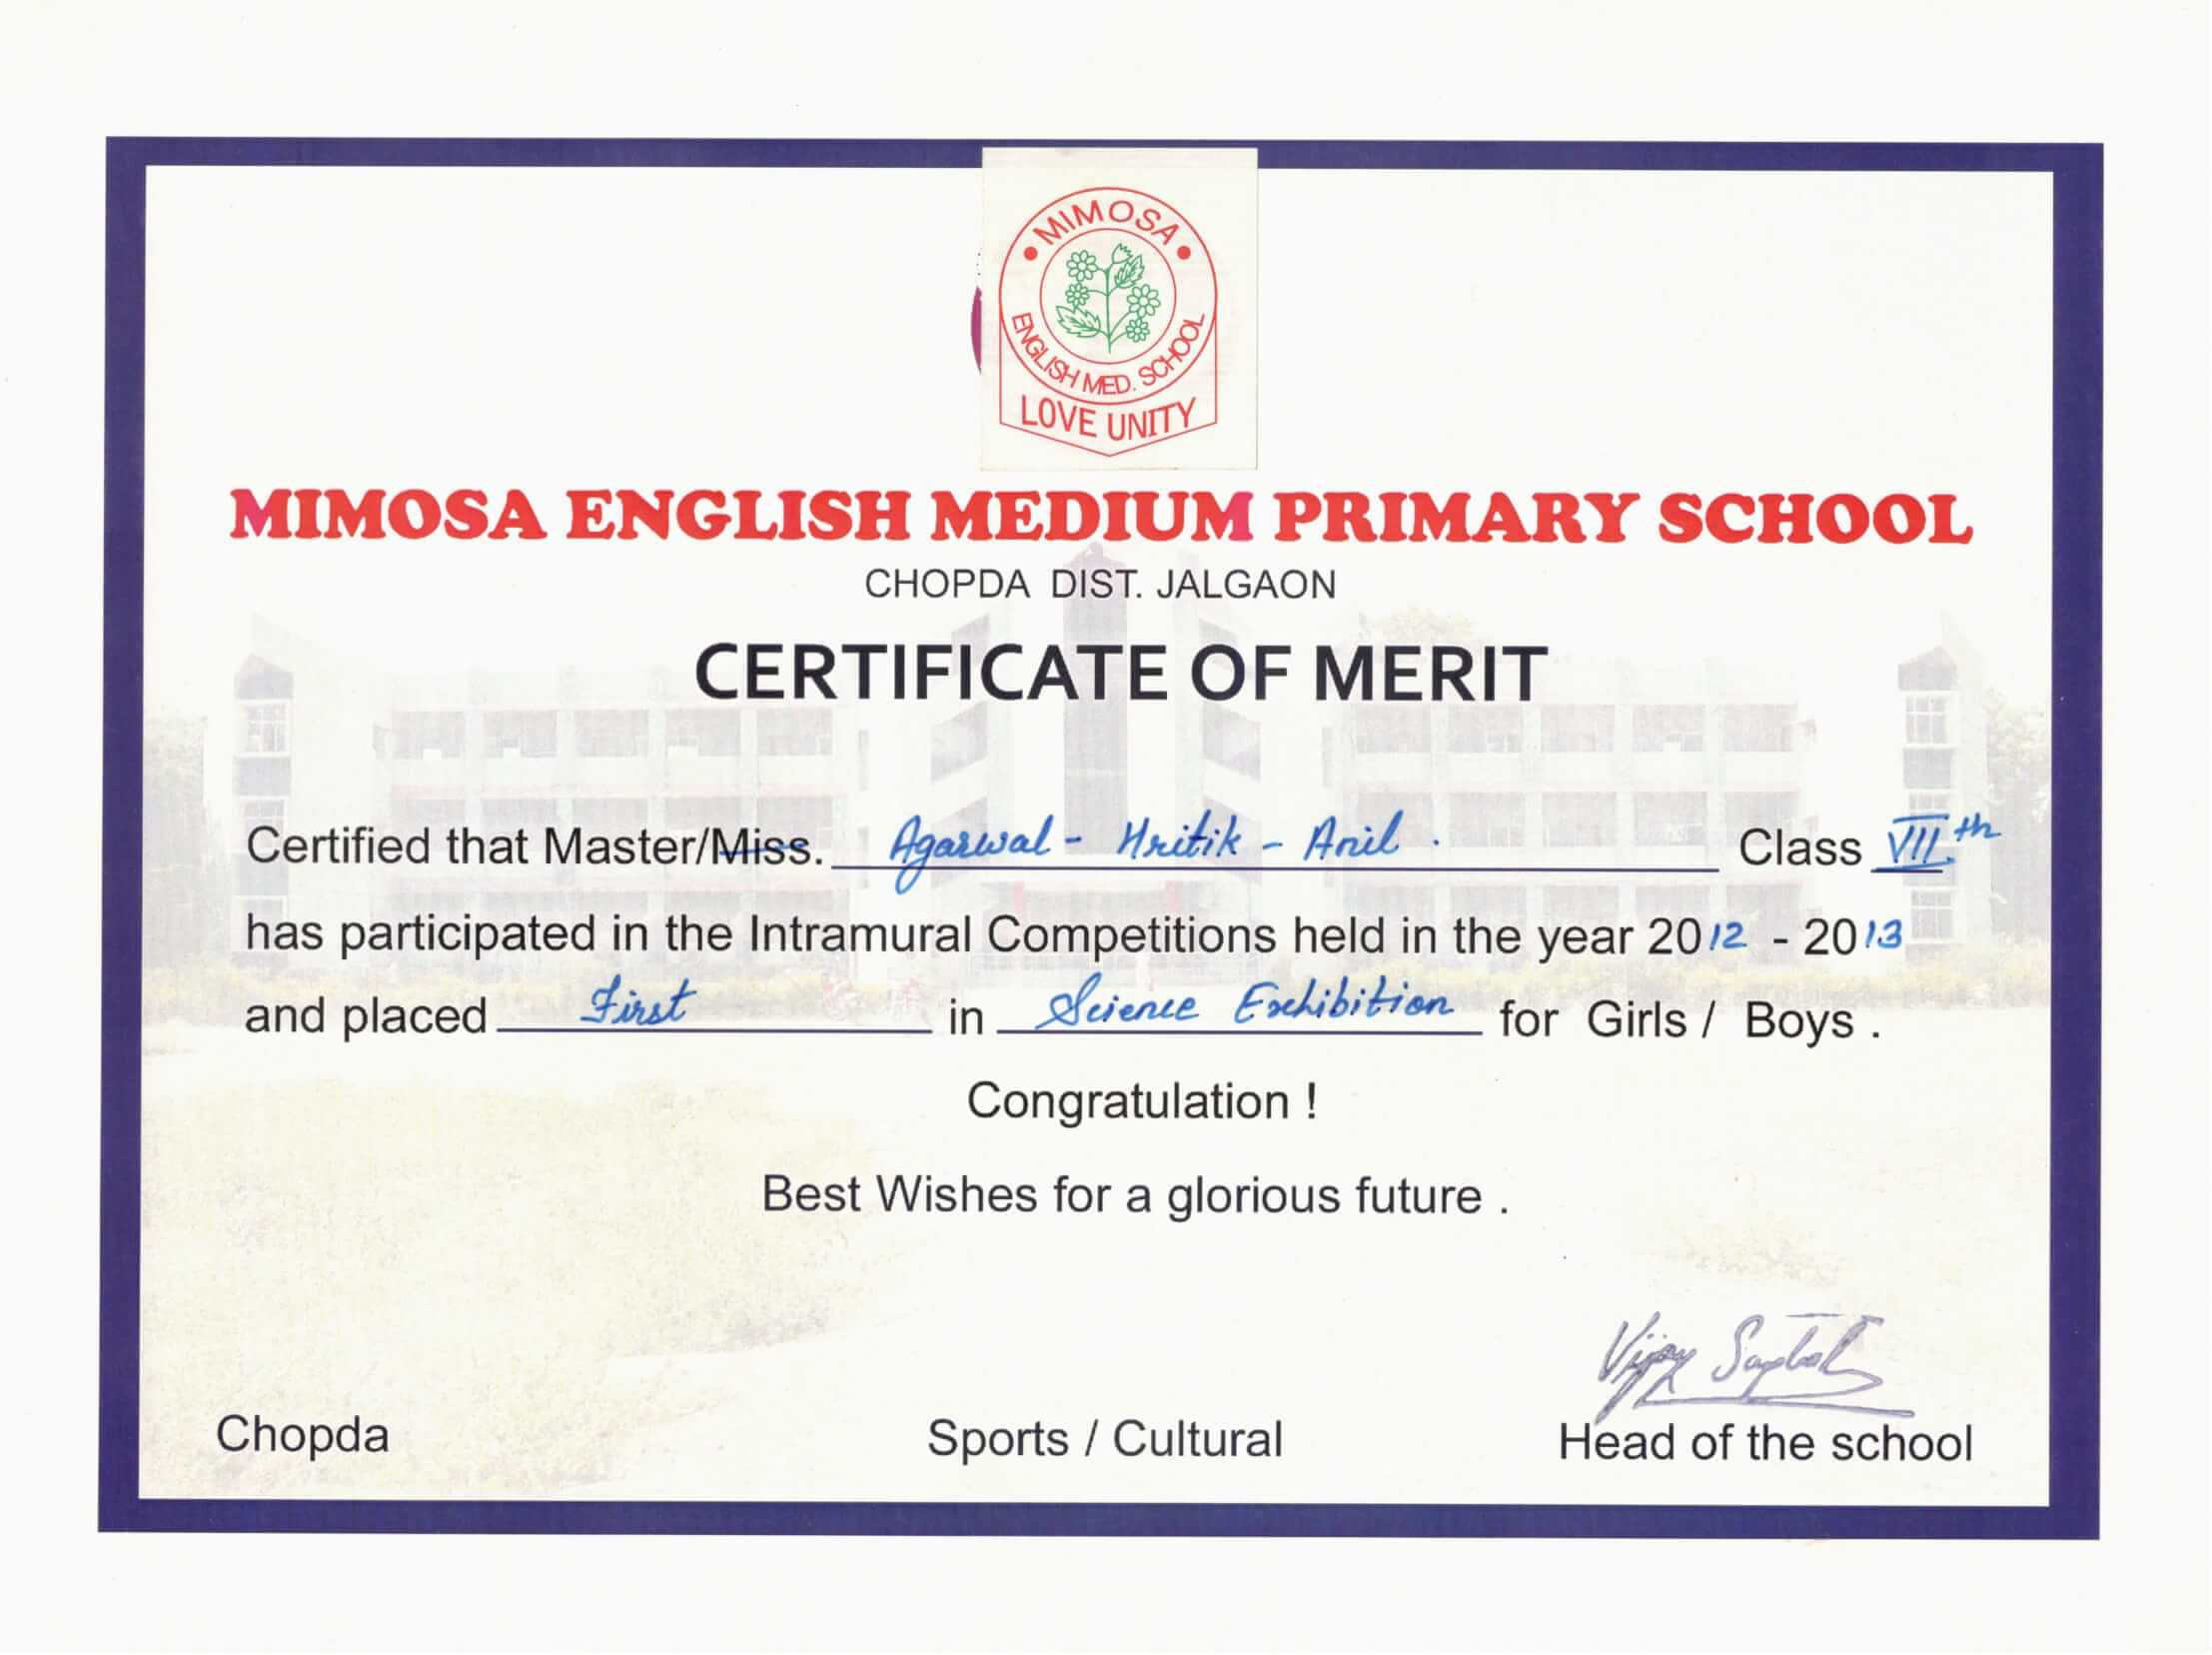 MIMOSA
ENGLISH MED. SCHOOL
LOVE UNITY
MIMOSA ENGLISH MEDIUM PRIMARY SCHOOL
CHOPDA DIST. JALGAON
CERTIFICATE OF MERIT
Certified that Master/Miss. Agarwal - Hritik - Anil. Class VIIth
has participated in the Intramural Competitions held in the year 2012 - 2013
and placed First in Science Exhibition for Girls / Boys .
Congratulation !
Best Wishes for a glorious future .
Vijay
Chopda Sports / Cultural Head of the school